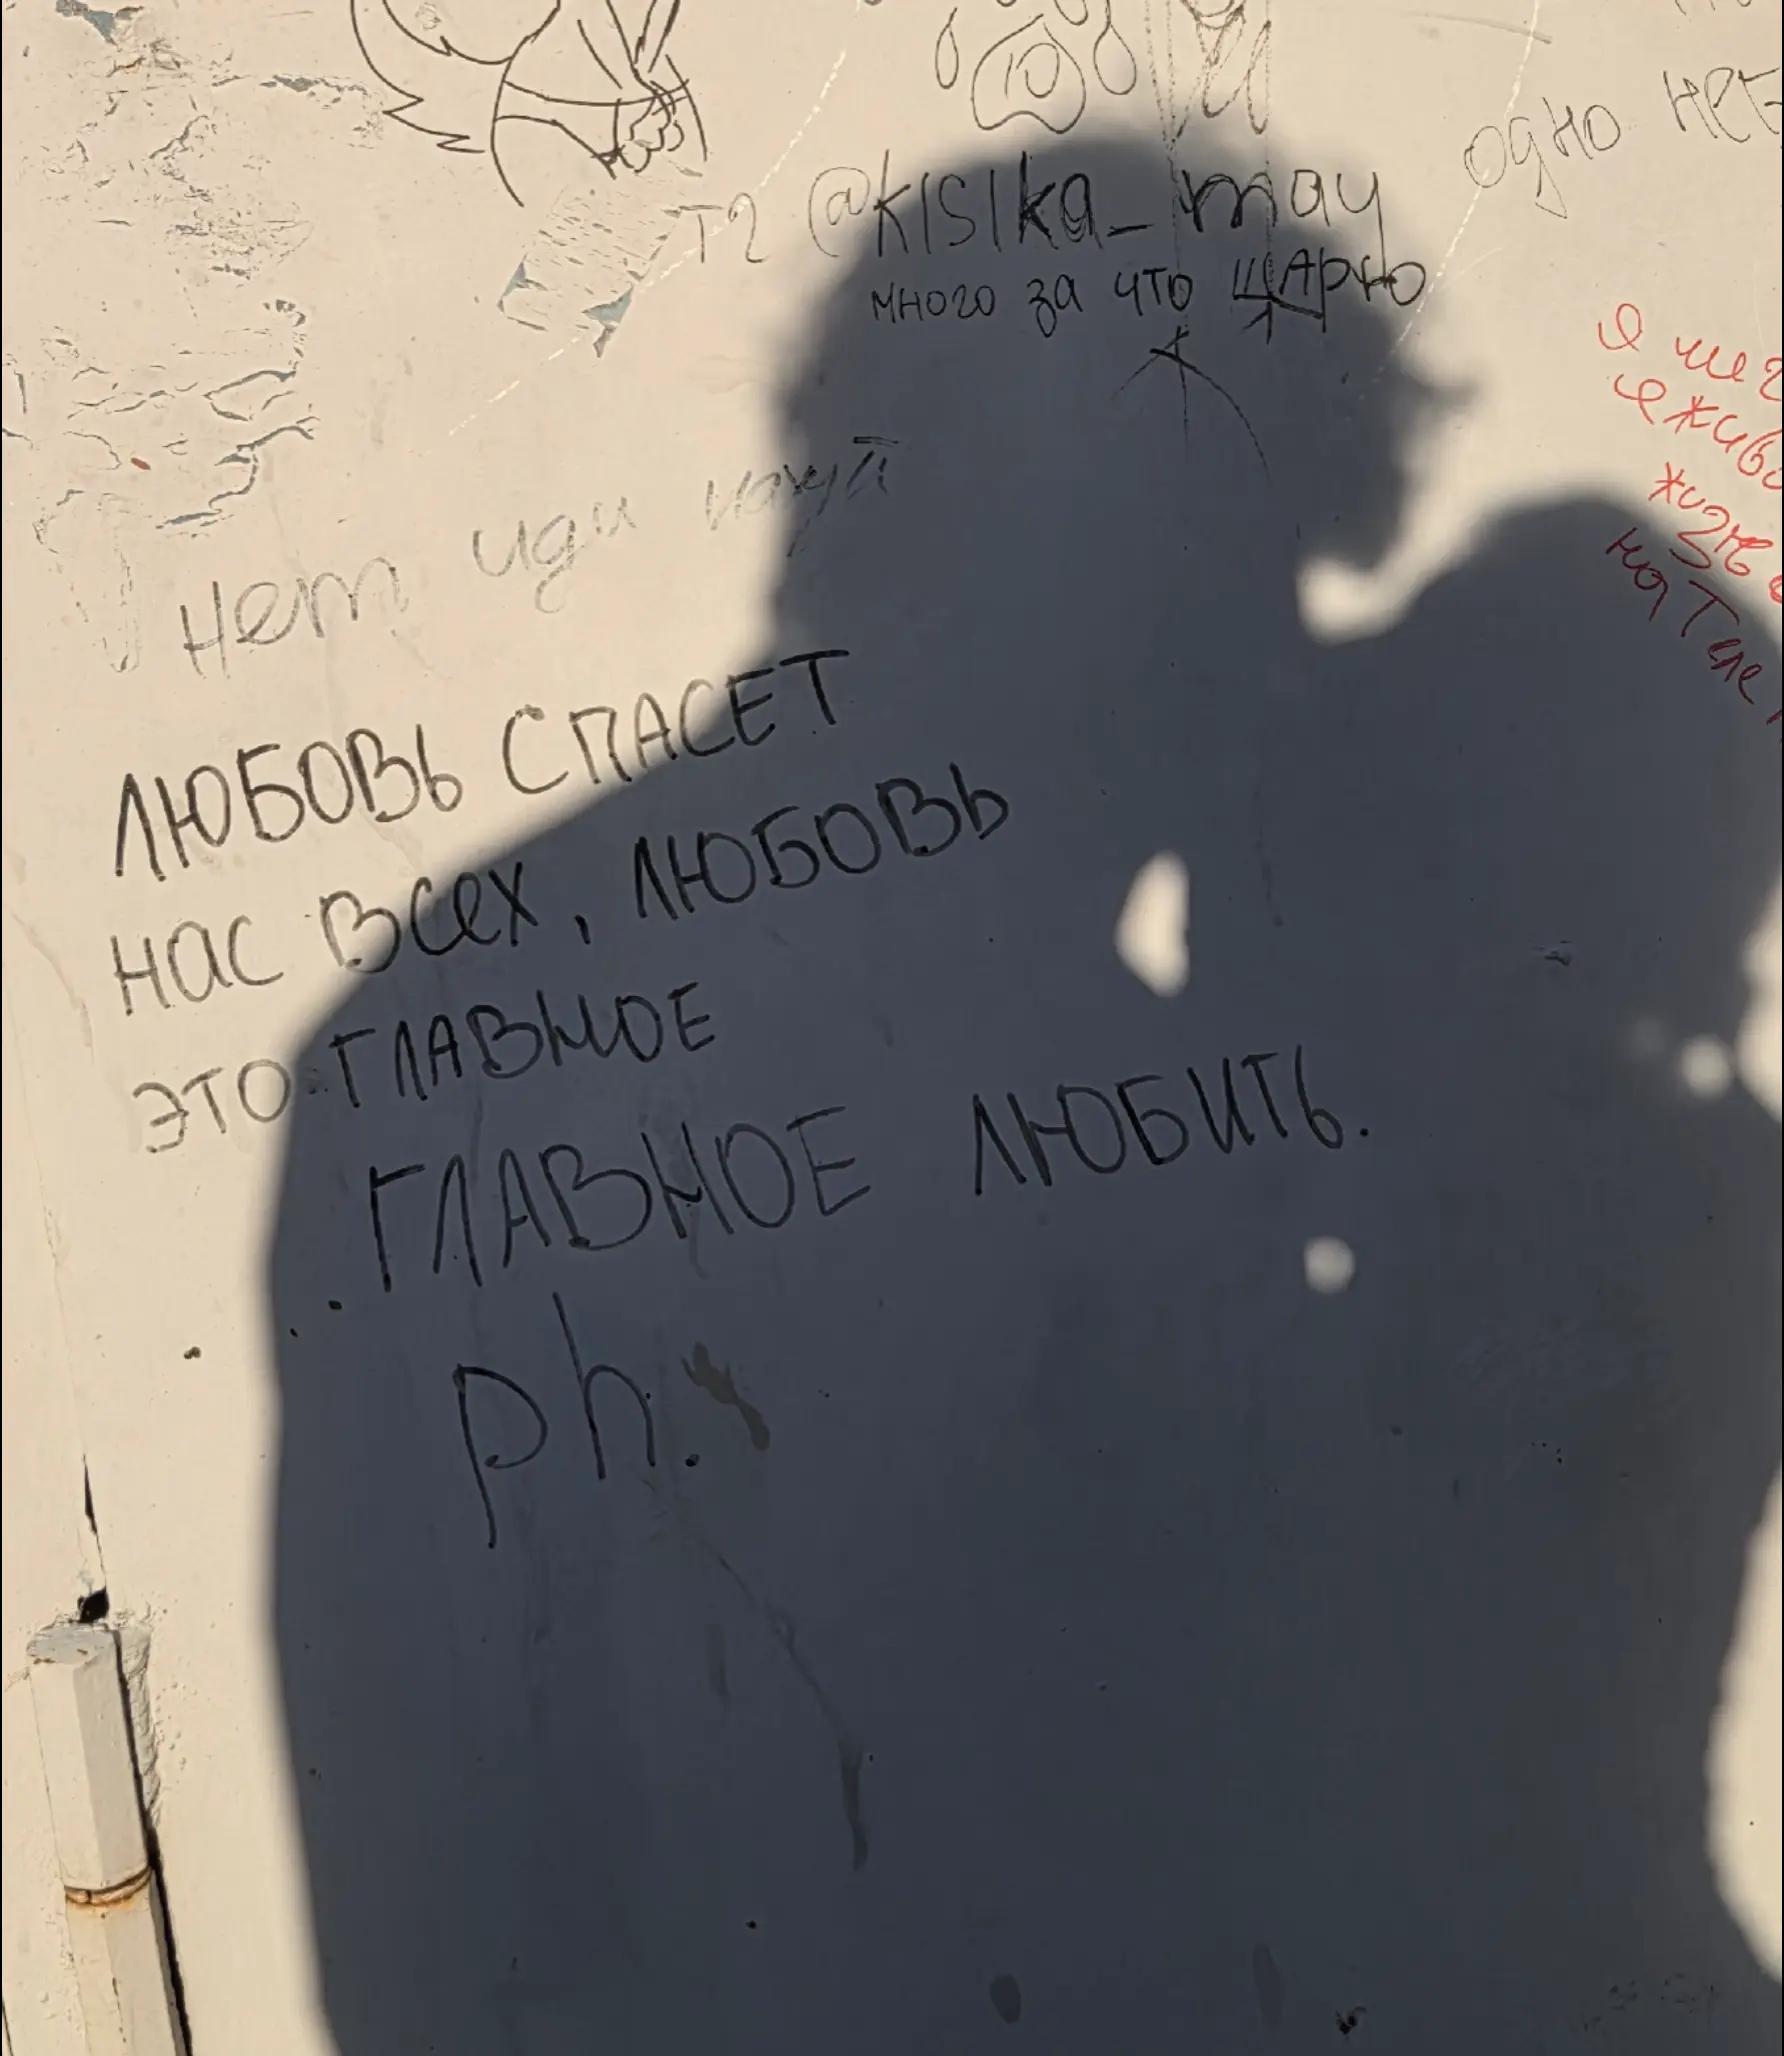 10
одно
т2 @kisika_may
много за что ШАрю
я
я живо
жизнь
на Теле
нет иди нахуй
ЛЮБОВЬ СПАСЕТ
НАС ВСЕХ, ЛЮБОВЬ
ЭТО ГЛАВНОЕ
..ГЛАВНОЕ ЛЮБИТЬ.
ph.